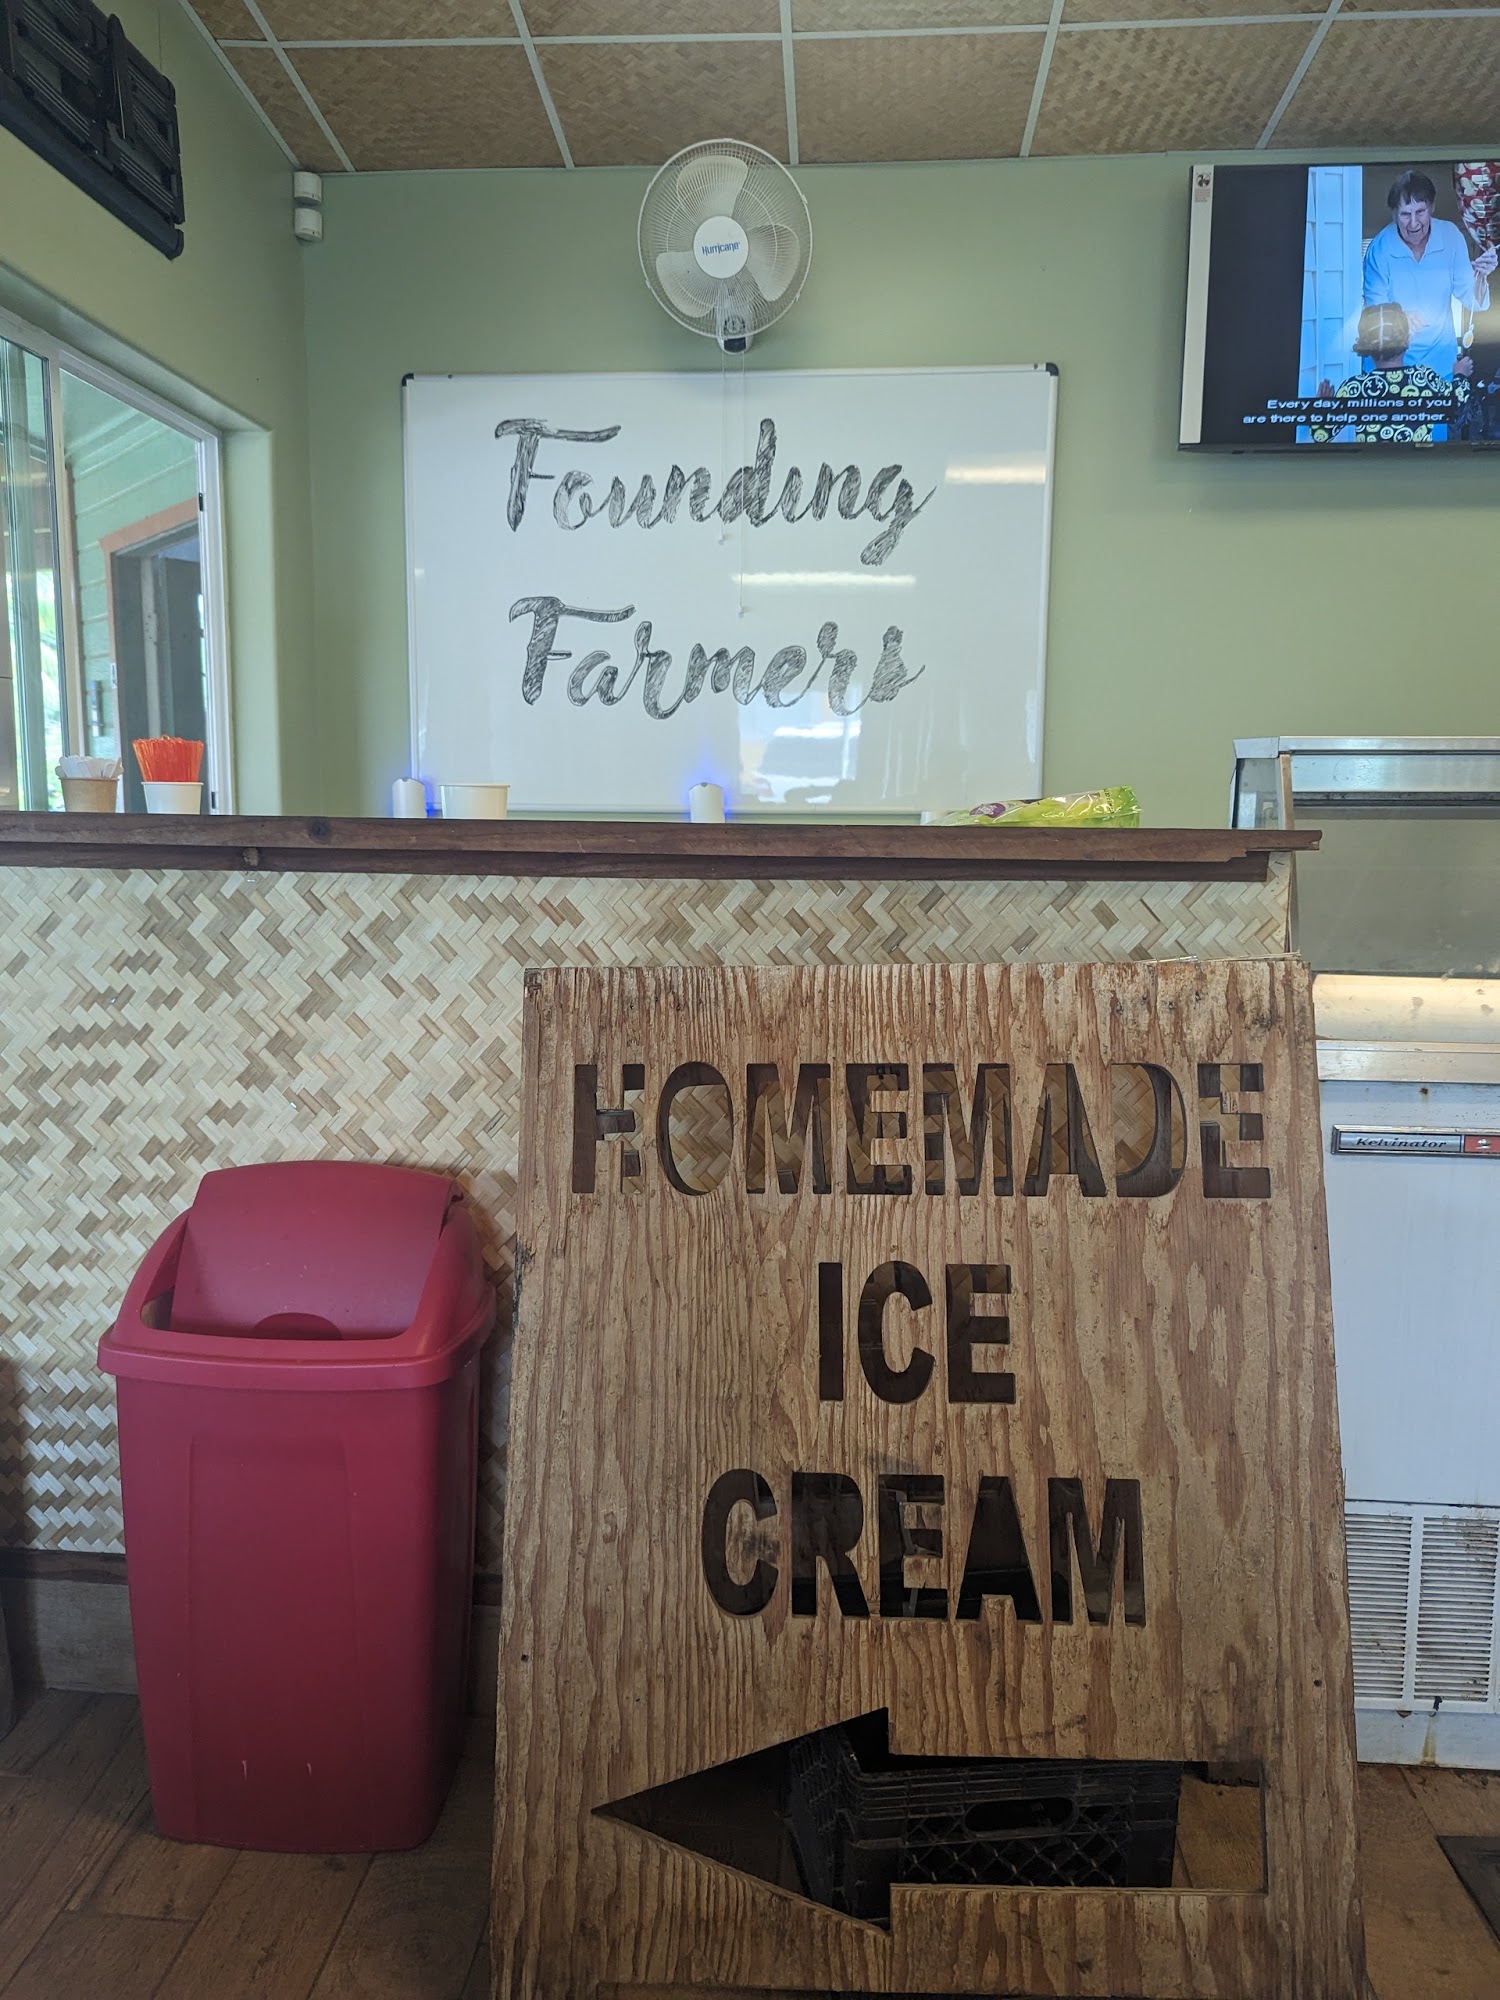 Hurricane
Every day, millions of you
are there to help one another.
Founding
Farmers
HOMEMADE
ICE
CREAM
Kelvinator